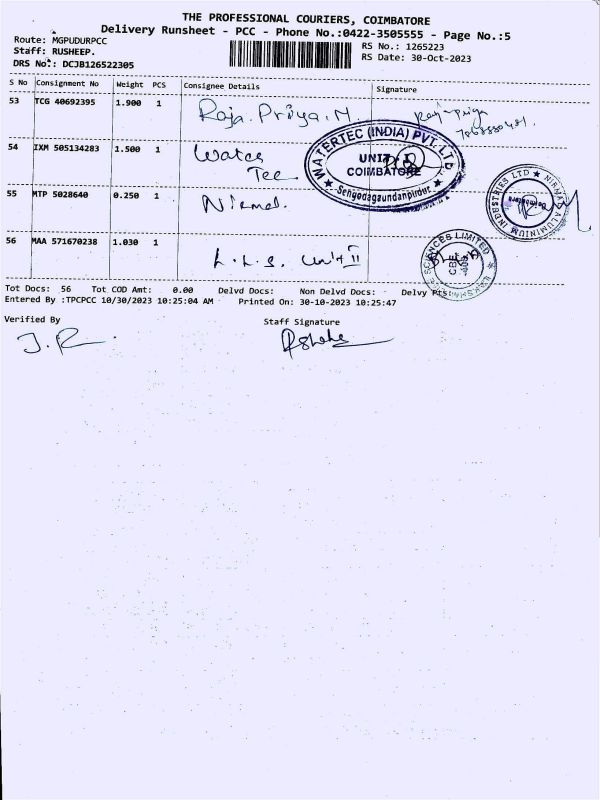 THE PROFESSIONAL COURIERS, COIMBATORE
Delivery Runsheet - PCC - Phone No.:0422-3505555 - Page No.:5
Route: MGPUDURPCC
RS No.: 1265223
Staff: RUSHEEP.
RS Date: 30-Oct-2023
DRS No.: DCJB126522305
S No Consignment No Weight PCS Consignee Details Signature
53 TCG 40692395 1.900 1 Raja. Priya. M.
54 IXM 505134283 1.500 1 Water
Tee
WATERTEC (INDIA) PVT. LTD
UNIT-I
COIMBATORE
55 MTP 5028640 0.250 1 Nirmal.
NIRMAL ALUMINIUM INDUSTRIES LTD
56 MAA 571670238 1.030 1 L.L.S. Unit II
SCIENCES LIMITED
CBE
Tot Docs: 56 Tot COD Amt: 0.00 Delvd Docs: Non Delvd Docs: Delvy
Entered By :TPCPCC 10/30/2023 10:25:04 AM Printed On: 30-10-2023 10:25:47
Verified By Staff Signature